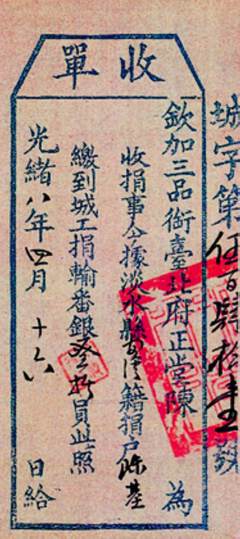 收單
城字第伍百肆拾壹號
欽加三品銜臺北府正堂陳 為
收捐事今據淡水縣 籍捐戶陳基
繳到城工捐輸番銀 員此照
光緒八年四月 十六 日給